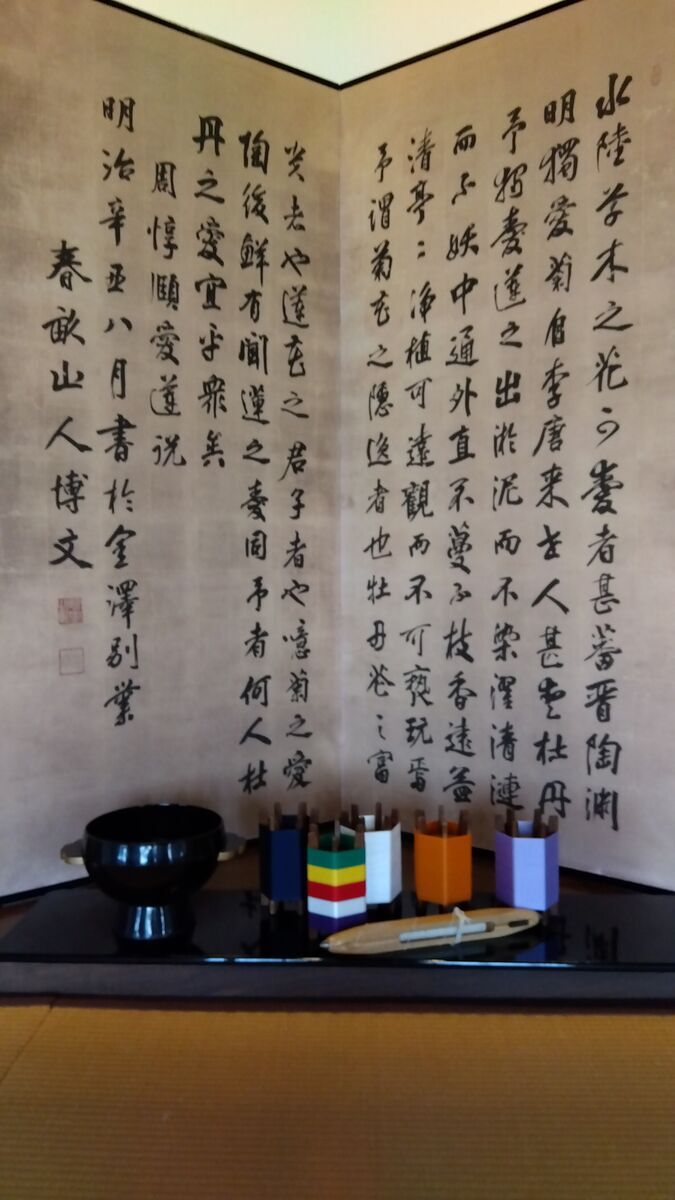 水陸草木之花可愛者甚蕃晋陶渊
明獨愛菊自李唐来世人甚愛牡丹
予獨愛蓮之出淤泥而不染濯清漣
而不妖中通外直不蔓不枝香遠益
清亭〻浄植可遠觀而不可褻玩焉
予謂菊花之隱逸者也牡丹花之富
貴者也蓮花之君子者也噫菊之愛
陶後鮮有聞蓮之愛同予者何人牡
丹之愛宜乎衆矣
周惇頤愛蓮説
明治辛丑八月書於金澤別業
春畝山人博文